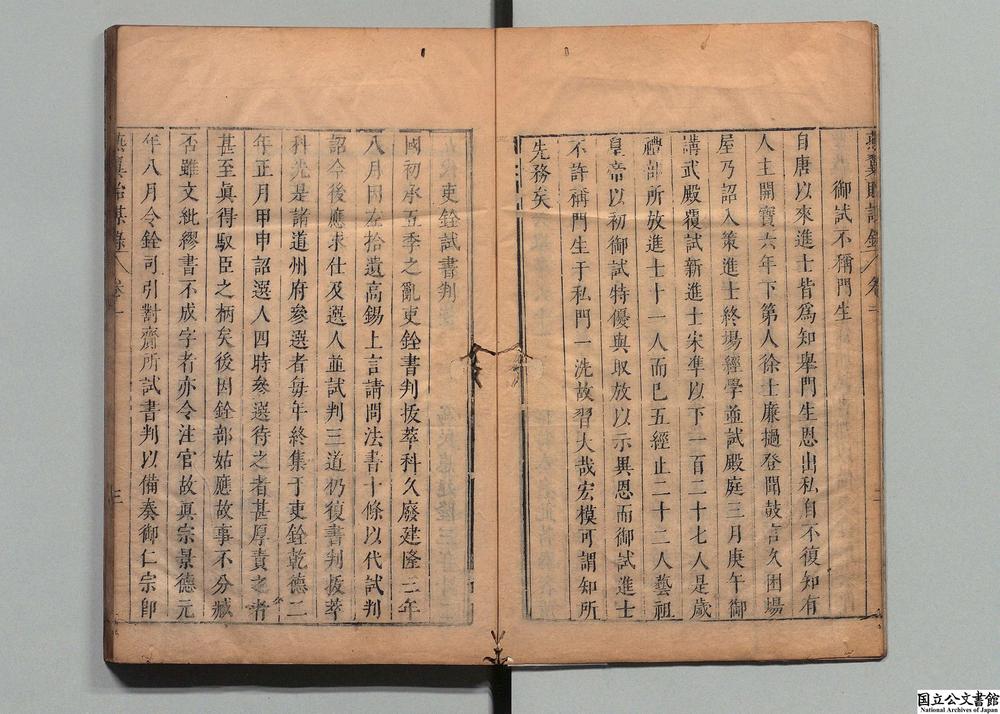 御試不稱門生
自唐以來進士皆爲知舉門生恩出私自不復知有
人主開寶六年下第人徐士廉撾登聞鼓言久困場
屋乃詔入策進士終場經學並試殿庭三月庚午御
講武殿覆試新進士宋準以下一百二十七人是歲
禮部所放進士十一人而巳五經止二十二人藝祖
皇帝以初御試特優與取放以示異恩而御試進士
不許稱門生于私門一洗故習大哉宏模可謂知所
先務矣
吏銓試書判
國初承五季之亂吏銓書判拔萃科久廢建隆三年
八月因左拾遺高錫上言請問法書十條以代試判
詔今後應求仕及選人並試判三道仍復書判拔萃
科先是諸道州府參選者每年終集于吏銓乾德二
年正月甲申詔選人四時參選待之者甚厚責之者
甚至眞得馭臣之柄矣後因銓部姑應故事不分臧
否雖文紕繆書不成字者亦令注官故眞宗景德元
年八月令銓司引對齎所試書判以備奏御仁宗卽
燕翼詒謀錄 卷一 三
国立公文書館
National Archives of Japan